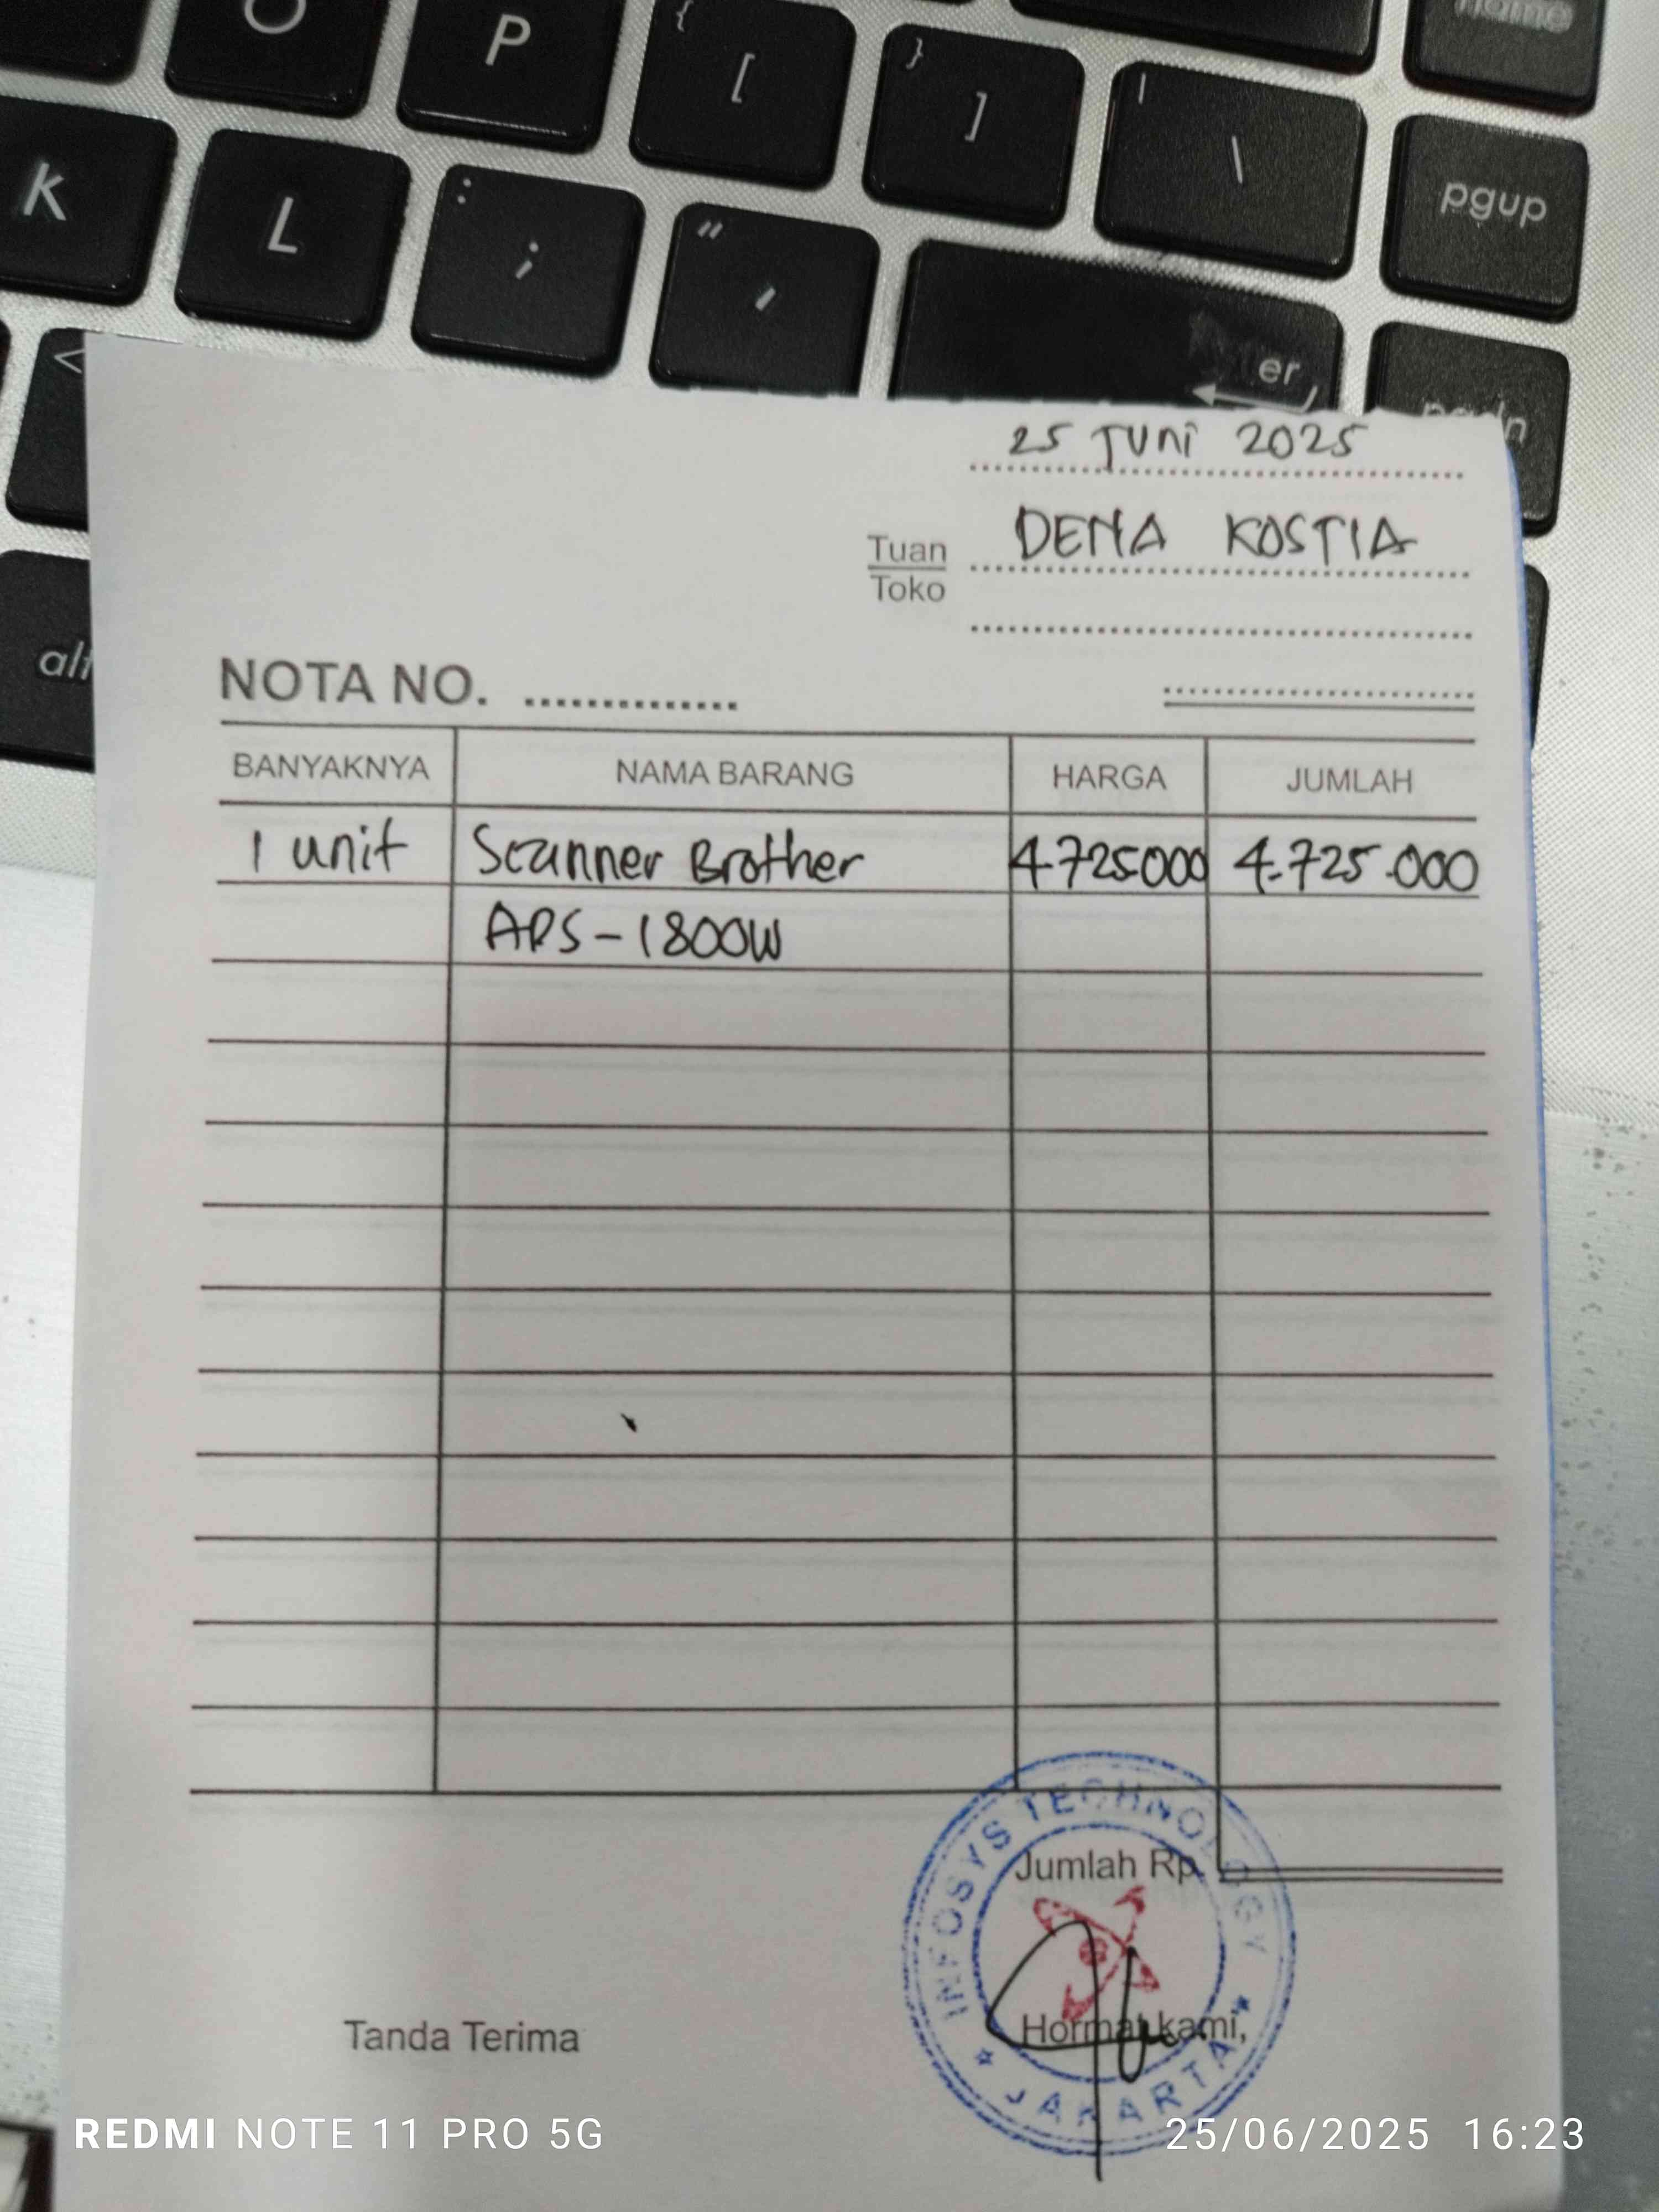 O P { [ } ] | \ home
K L : ; " ' er pgup
< pgdn
alt
25 Juni 2025
Tuan DENA KOSTIA
Toko
NOTA NO.
BANYAKNYA NAMA BARANG HARGA JUMLAH
1 unit Scanner Brother 4.725000 4.725.000
ADS-1800W
INFOSYS TECHNOLOGY
Jumlah Rp.
Tanda Terima Hormat kami,
JAKARTA
REDMI NOTE 11 PRO 5G 25/06/2025 16:23